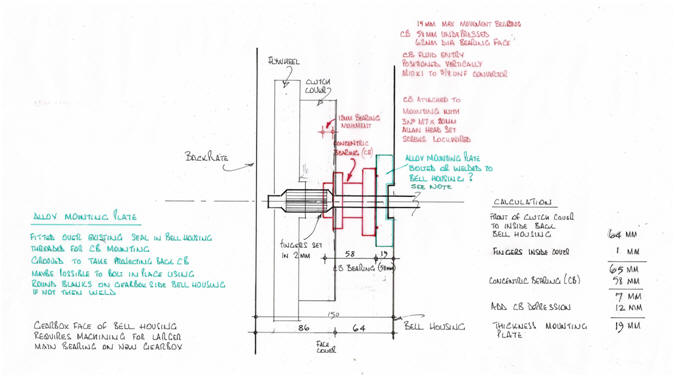 19MM MAX MOVEMENT BEARING
CB 58MM UNDEPRESSED
62MM DIA BEARING FACE
CB FLUID ENTRY
POSITIONED VERTICALLY
M10X1 TO 3/8 UNF CONVERTOR
CB ATTACHED TO
MOUNTING WITH
3Nº M7 X 20MM
ALLAN HEAD SET
SCREWS LOCKWIRED
FLYWHEEL
CLUTCH
COVER
12MM BEARING
MOVEMENT
CONCENTRIC
BEARING (CB)
BACKPLATE
ALLOY MOUNTING PLATE
BOLTED OR WELDED TO
BELL HOUSING ?
SEE NOTE
ALLOY MOUNTING PLATE
FITTED OVER EXISTING SEAL IN BELL HOUSING
THREADED FOR CB MOUNTING
GROUND TO TAKE PROJECTING BACK CB
MAYBE POSSIBLE TO BOLT IN PLACE USING
ROUND BLANKS ON GEARBOX SIDE BELL HOUSING
IF NOT THEN WELD
GEARBOX FACE OF BELL HOUSING
REQUIRES MACHINING FOR LARGER
MAIN BEARING ON NEW GEARBOX
FINGERS SET
IN 2MM
58
19
CB BEARING (58MM)
150
86
64
FACE
COVER
BELL HOUSING
CALCULATION
FRONT OF CLUTCH COVER
TO INSIDE BACK
BELL HOUSING 64 MM
FINGERS INSIDE COVER 1 MM
65 MM
CONCENTRIC BEARING (CB) 58 MM
7 MM
ADD CB DEPRESSION 12 MM
THICKNESS MOUNTING 19 MM
PLATE